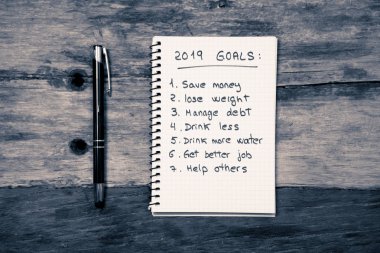 2019 GOALS:
1. Save money
2. lose weight
3. Manage debt
4. Drink less
5. Drink more water
6. Get better job
7. Help others